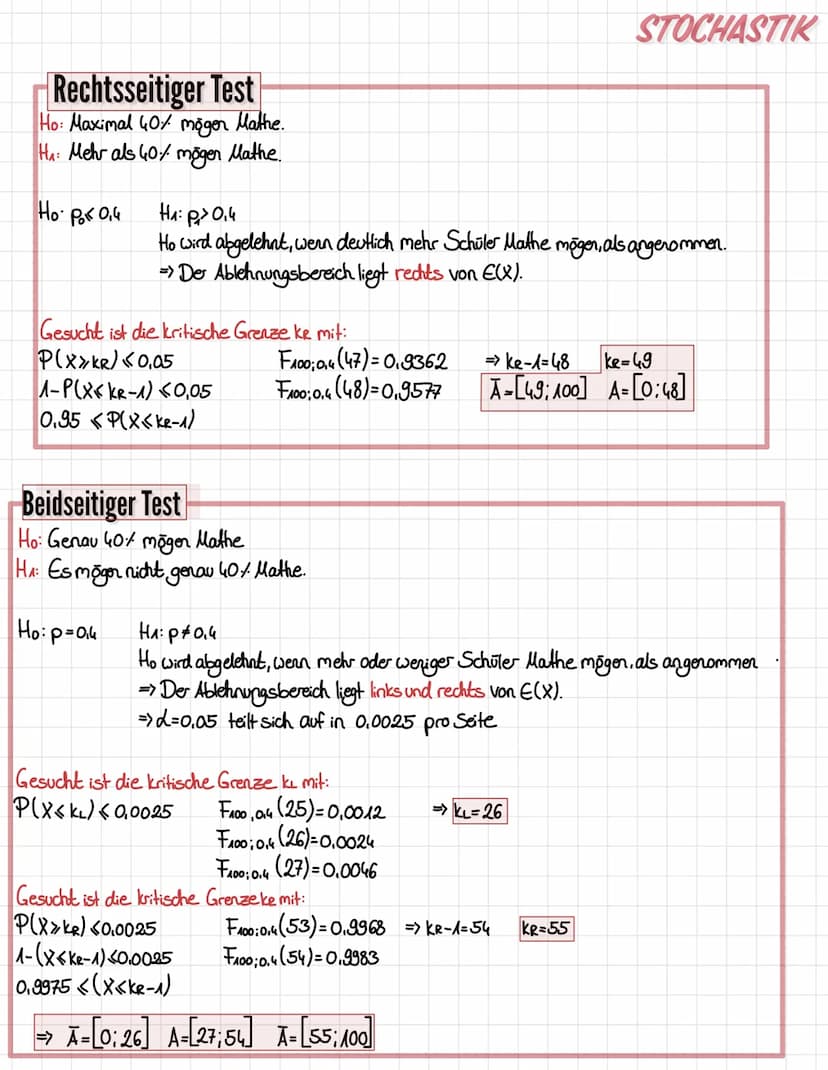 STOCHASTIK
Rechtsseitiger Test
H₀: Maximal 40% mögen Mathe.
H₁: Mehr als 40% mögen Mathe.
H₀: p₀≤0,4 H₁: p₁>0,4
H₀ wird abgelehnt, wenn deutlich mehr Schüler Mathe mögen, als angenommen.
⇒ Der Ablehnungsbereich liegt rechts von E(X).
Gesucht ist die kritische Grenze kR mit:
P(X≥kR)≤0,05 F₁₀₀;₀,₄(47)=0,9362 ⇒ kR-1=48 kR=49
1-P(X≤kR-1)≤0,05 F₁₀₀;₀,₄(48)=0,9577 Ā=[49;100] A=[0;48]
0,95 ≤P(X≤kR-1)
Beidseitiger Test
H₀: Genau 40% mögen Mathe
H₁: Es mögen nicht genau 40% Mathe.
H₀: p=0,4 H₁: p≠0,4
H₀ wird abgelehnt, wenn mehr oder weniger Schüler Mathe mögen, als angenommen
⇒ Der Ablehnungsbereich liegt links und rechts von E(X).
⇒ α=0,05 teilt sich auf in 0,0025 pro Seite
Gesucht ist die kritische Grenze kL mit:
P(X≤kL)≤0,0025 F₁₀₀;₀,₄(25)=0,0012 ⇒ kL=26
F₁₀₀;₀,₄(26)=0,0024
F₁₀₀;₀,₄(27)=0,0046
Gesucht ist die kritische Grenze kR mit:
P(X≥kR)≤0,0025 F₁₀₀;₀,₄(53)=0,9968 ⇒ kR-1=54 kR=55
1-(X≤kR-1)≤0,0025 F₁₀₀;₀,₄(54)=0,9983
0,9975≤(X≤kR-1)
⇒ Ā=[0;26] A=[27;54] Ā=[55;100]